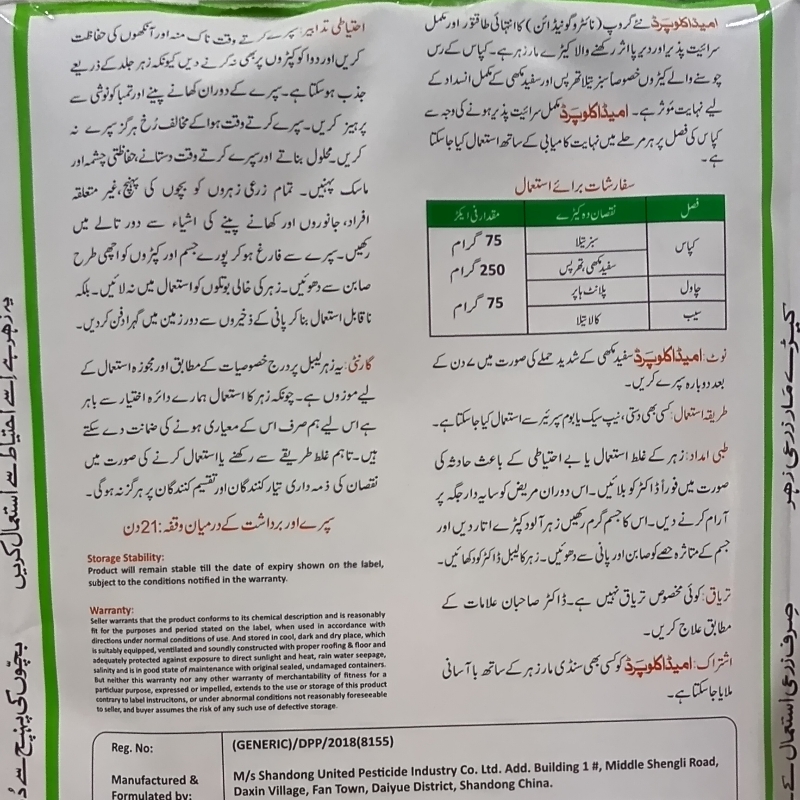 امیڈاکلوپرڈ نئے گروپ (نائٹروگونیڈائن) کا انتہائی طاقتور اور مکمل
سرائیت پذیر اور دیرپا اثر رکھنے والا کیڑے مار زہر ہے۔ کپاس کے رس
چوسنے والے کیڑوں خصوصاً سبز تیلا تھرپس اور سفید مکھی کے مکمل انسداد کے
لیے نہایت مؤثر ہے۔ امیڈاکلوپرڈ مکمل سرائیت پذیر ہونے کی وجہ سے
کپاس کی فصل پر ہر مرحلے میں نہایت کامیابی کے ساتھ استعمال کیا جاسکتا
ہے۔
سفارشات برائے استعمال
فصل نقصان دہ کیڑے مقدار فی ایکڑ
کپاس سبز تیلا 75 گرام
سفید مکھی، تھرپس 250 گرام
چاول پلانٹ ہاپر 75 گرام
سیب کالا تیلا
نوٹ: امیڈاکلوپرڈ سفید مکھی کے شدید حملے کی صورت میں ۷ دن کے
بعد دوبارہ سپرے کریں۔
طریقہ استعمال: کسی بھی دستی، نیپ سیک یا بوم سپرئیر سے استعمال کیا جاسکتا ہے۔
طبی امداد: زہر کے غلط استعمال یا بے احتیاطی کے باعث حادثہ کی
صورت میں فوراً ڈاکٹر کو بلائیں۔ اس دوران مریض کو سایہ دار جگہ پر
آرام کرنے دیں۔ اس کا جسم گرم رکھیں زہر آلود کپڑے اتار دیں اور
جسم کے متاثرہ حصے کو صابن اور پانی سے دھوئیں۔ زہر کا لیبل ڈاکٹر کو دکھائیں۔
تریاق: کوئی مخصوص تریاق نہیں ہے۔ ڈاکٹر صاحبان علامات کے
مطابق علاج کریں۔
اشتراک: امیڈاکلوپرڈ کو کسی بھی سنڈی مار زہر کے ساتھ با آسانی
ملایا جاسکتا ہے۔
احتیاطی تدابیر: سپرے کرتے وقت ناک منہ اور آنکھوں کی حفاظت
کریں اور دوا کو کپڑوں پر بھی نہ گرنے دیں کیونکہ زہر جلد کے ذریعے
جذب ہوسکتا ہے۔ سپرے کے دوران کھانے پینے اور تمباکو نوشی سے
پرہیز کریں۔ سپرے کرتے وقت ہوا کے مخالف رُخ ہرگز سپرے نہ
کریں۔ محلول بناتے اور سپرے کرتے وقت دستانے، حفاظتی چشمہ اور
ماسک پہنیں۔ تمام زرعی زہروں کو بچوں کی پہنچ، غیر متعلقہ
افراد، جانوروں اور کھانے پینے کی اشیاء سے دور تالے میں
رکھیں۔ سپرے سے فارغ ہوکر پورے جسم اور کپڑوں کو اچھی طرح
صابن سے دھوئیں۔ زہر کی خالی بوتلوں کو استعمال میں نہ لائیں۔ بلکہ
ناقابل استعمال بنا کر پانی کے ذخیروں سے دور زمین میں گہرا دفن کردیں۔
گارنٹی: یہ زہر لیبل پر درج خصوصیات کے مطابق اور مجوزہ استعمال کے
لیے موزوں ہے۔ چونکہ زہر کا استعمال ہمارے دائرہ اختیار سے باہر
ہے اس لیے ہم صرف اس کے معیاری ہونے کی ضمانت دے سکتے
ہیں۔ تاہم غلط طریقے سے رکھنے یا استعمال کرنے کی صورت میں
نقصان کی ذمہ داری تیار کنندگان اور تقسیم کنندگان پر ہرگز نہ ہوگی۔
سپرے اور برداشت کے درمیان وقفہ: 21 دن
Storage Stability:
Product will remain stable till the date of expiry shown on the label,
subject to the conditions notified in the warranty.
Warranty:
Seller warrants that the product conforms to its chemical description and is reasonably
fit for the purposes and period stated on the label, when used in accordance with
directions under normal conditions of use. And stored in cool, dark and dry place, which
is suitably equipped, ventilated and soundly constructed with proper roofing & floor and
adequately protected against exposure to direct sunlight and heat, rain water seepage,
salinity and is in good state of maintenance with original sealed, undamaged containers.
But neither this warranty nor any other warranty of merchantability of fitness for a
particuar purpose, expressed or impelled, extends to the use or storage of this product
contrary to label instrucitons, or under abnormal conditions not reasonably foreseeable
to seller, and buyer assumes the risk of any such use of defective storage.
Reg. No: (GENERIC)/DPP/2018(8155)
Manufactured & M/s Shandong United Pesticide Industry Co. Ltd. Add. Building 1 #, Middle Shengli Road,
Formulated by: Daxin Village, Fan Town, Daiyue District, Shandong China.
کیڑے مار زرعی زہر
صرف زرعی استعمال کے
یہ زہر ہے اسے احتیاط سے استعمال کریں
بچوں کی پہنچ سے دُ